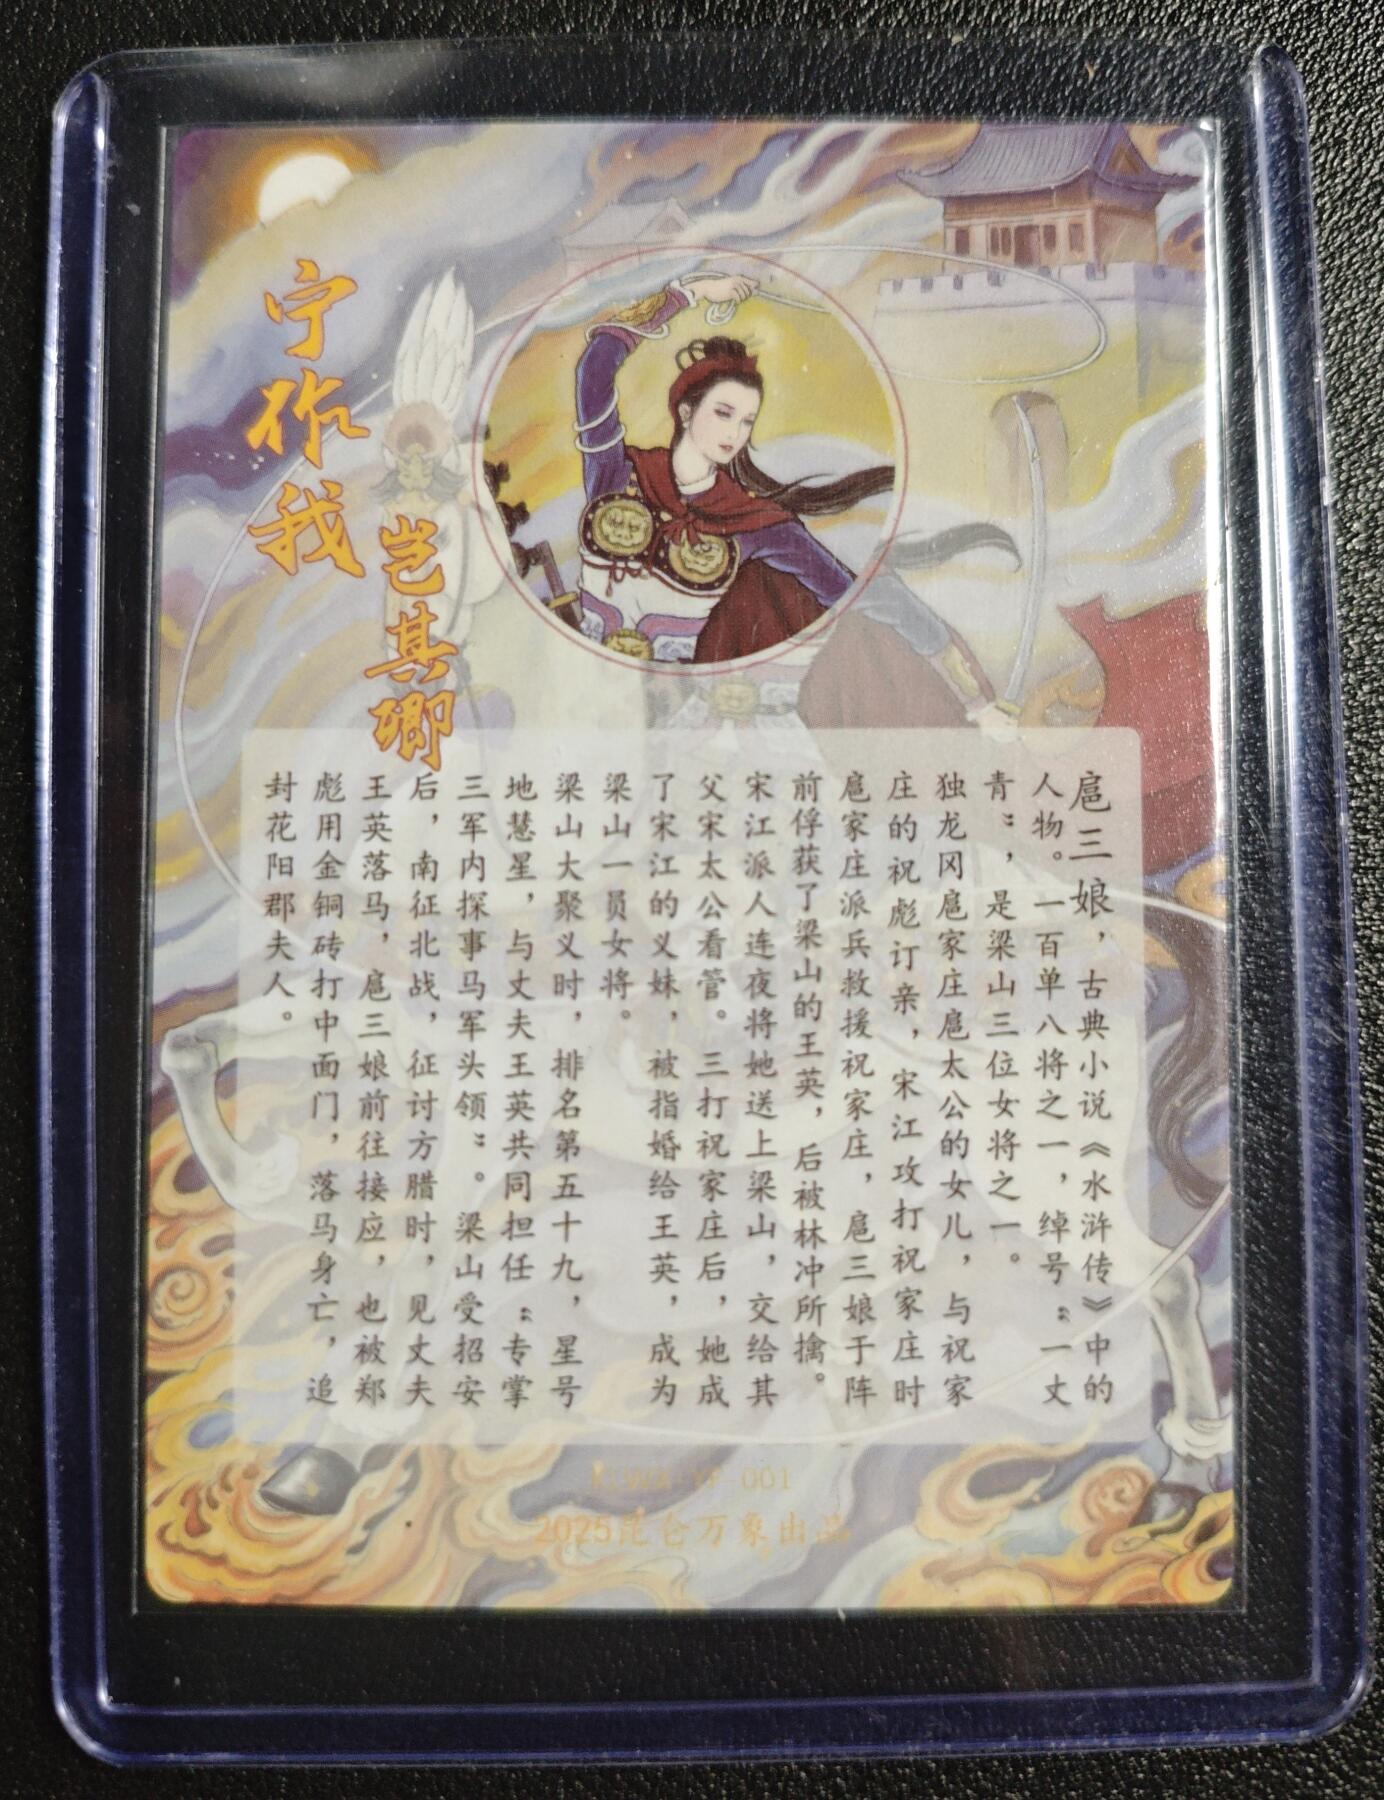 宁作我
岂其卿
扈三娘，古典小说《水浒传》中的
人物。一百单八将之一，绰号“一丈
青”，是梁山三位女将之一。
独龙冈扈家庄扈太公的女儿，与祝家
庄的祝彪订亲，宋江攻打祝家庄时
扈家庄派兵救援祝家庄，扈三娘于阵
前俘获了梁山的王英，后被林冲所擒。
宋江派人连夜将她送上梁山，交给其
父宋太公看管。三打祝家庄后，她成
了宋江的义妹，被指婚给王英，成为
梁山一员女将。
梁山大聚义时，排名第五十九，星号
地慧星，与丈夫王英共同担任“专掌
三军内探事马军头领”。梁山受招安
后，南征北战，征讨方腊时，见丈夫
王英落马，扈三娘前往接应，也被郑
彪用金铜砖打中面门，落马身亡，追
封花阳郡夫人。
-001
2025昆仑万象出品